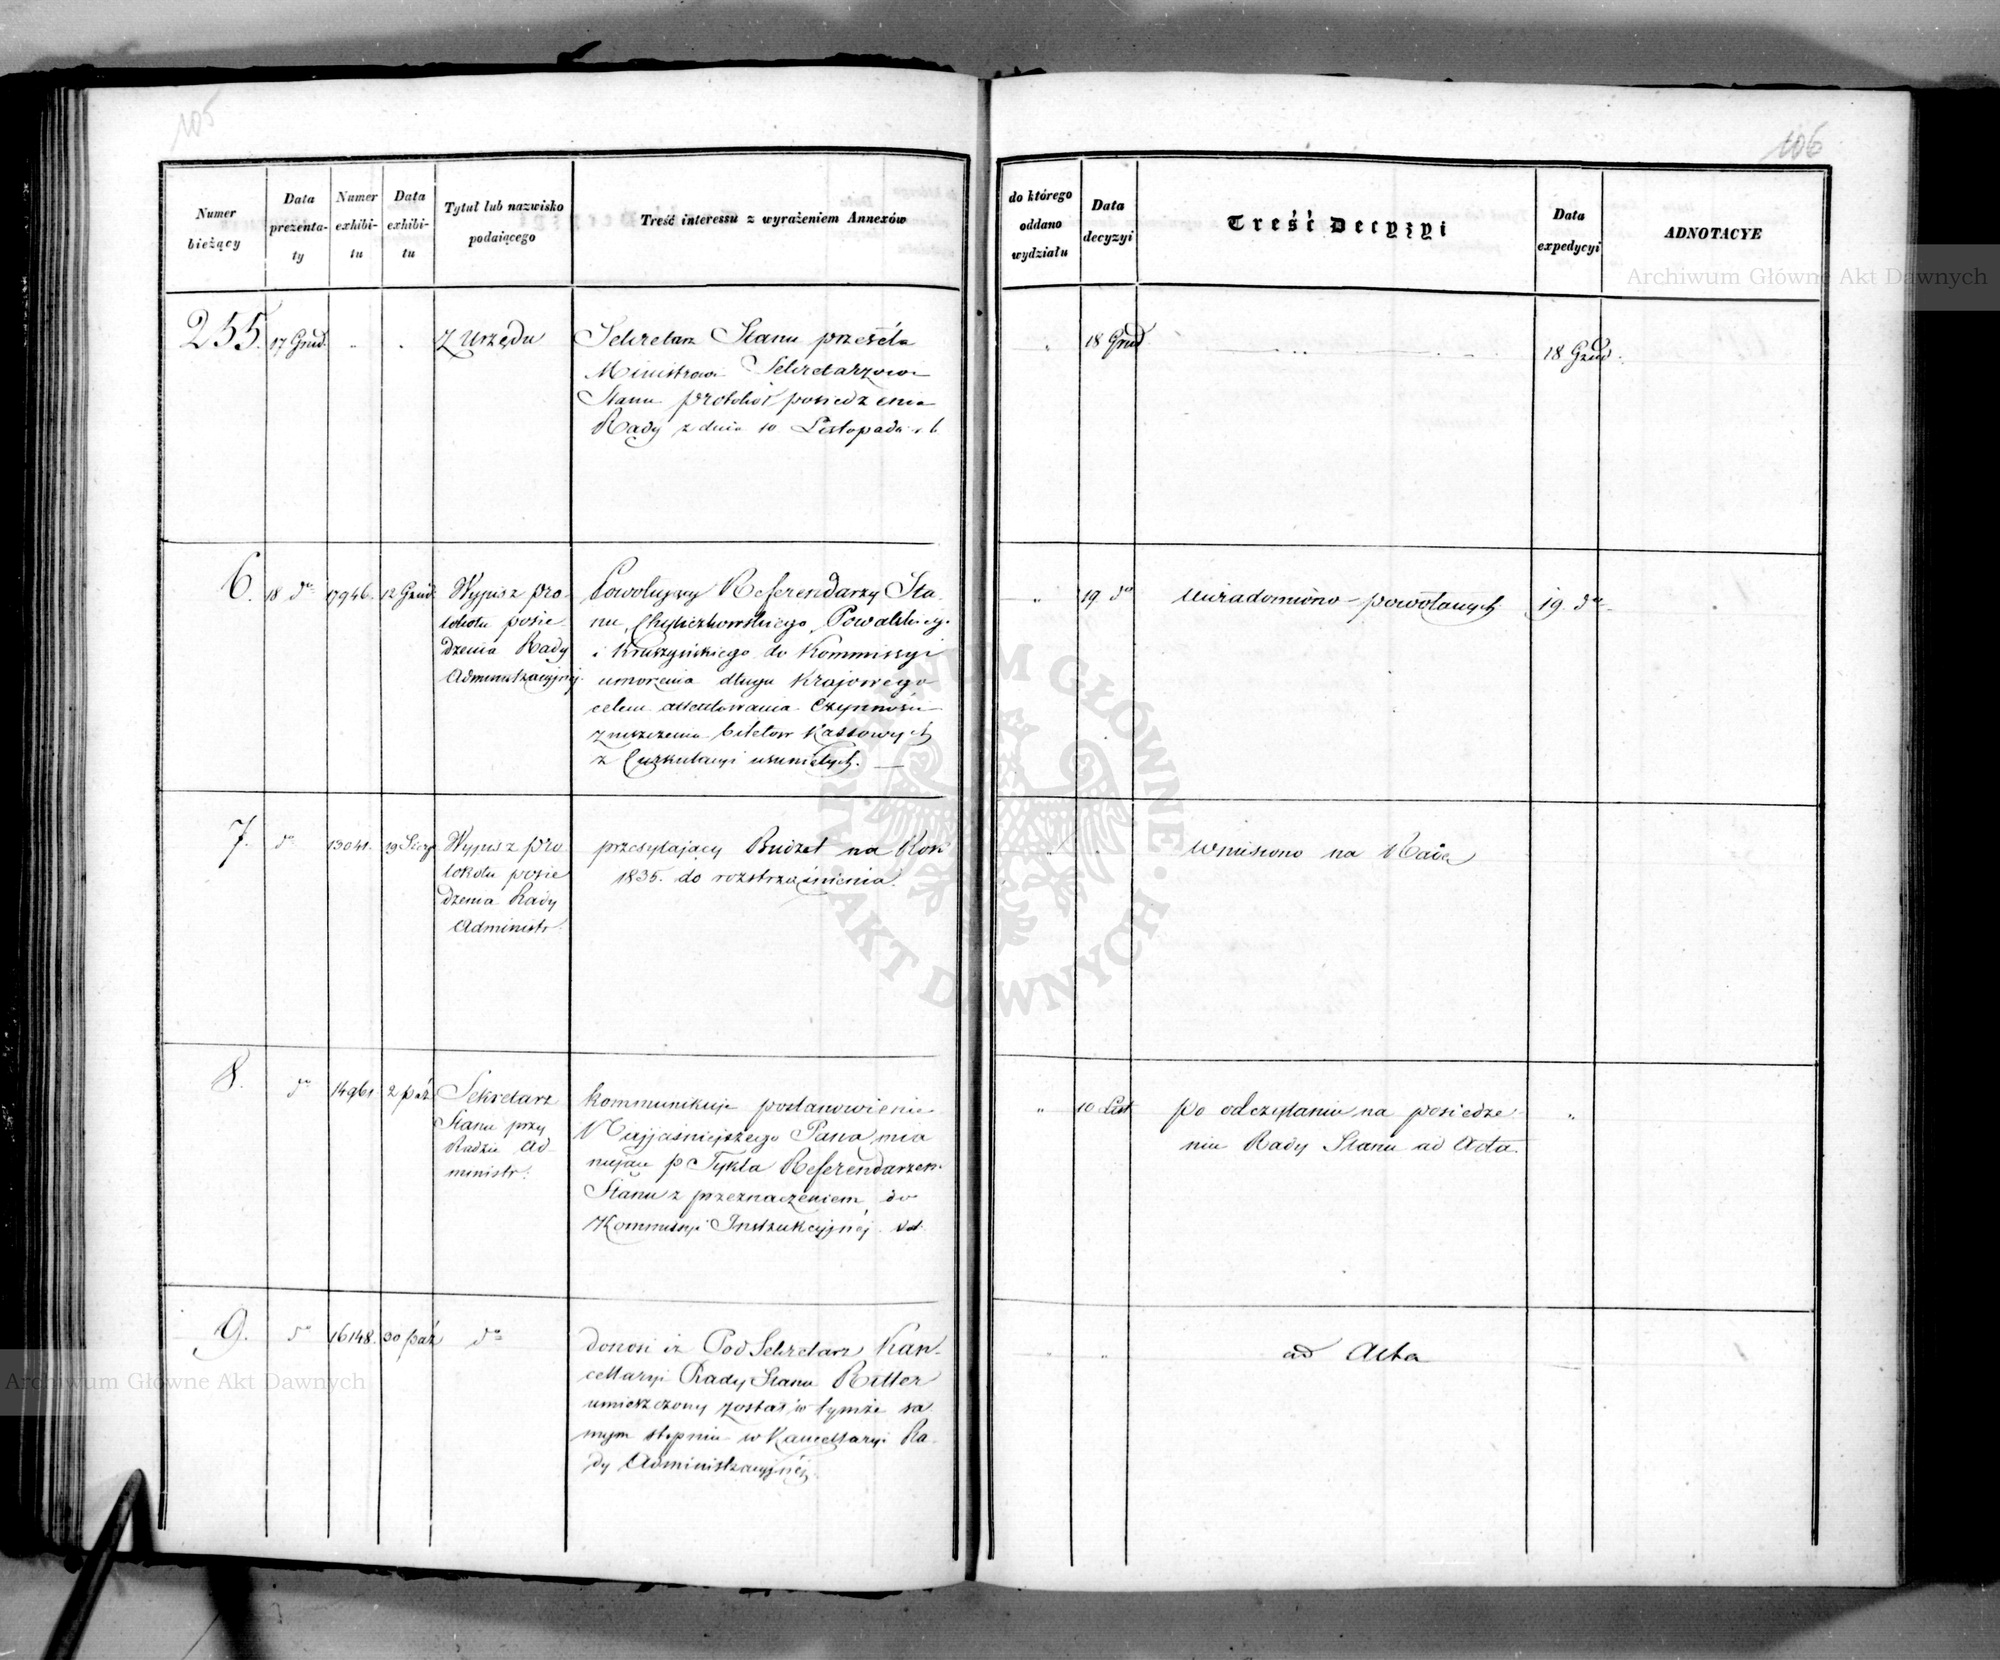 105
Numer
bieżący
Data
prezenta-
ty
Numer
exhibi-
tu
Data
exhibi-
tu
Tytuł lub nazwisko
podaiącego
Treść interessu z wyrażeniem Annexów
255. 17 Grud. " . Z Urzędu
Sekretarz Stanu przesyła
Ministrowi Sekretarzowi
Stanu protokół posiedzenia
Rady z dnia 10 Listopada r. b.
6. 18 do 17946. 12 Grud.
Wypis z pro-
tokołu posie-
dzenia Rady
Administracyjnej.
Powołujący Referendarzy Sta-
nu, Chyliczkowskiego, Powalskieg.
i Kruszyńskiego do Kommissyi
umorzenia długu Krajowego
celem assentowania Czynności
zniszczenia biletow Kassowych
z Cyrkulacyi usuniętych. —
7. do 13041. 19 Sierp
Wypis z pro
tokołu posie
dzenia Rady
Administr.
przesyłający Budżet na Rok
1835. do roztrząśnienia.
8. do 14961 2 paź.
Sekretarz
Stanu przy
Radzie Ad-
ministr.
kommunikuje postanowienie
Najjaśniejszego Pana mia
nujące p Tykla Referendarzem
Stanu z przeznaczeniem do
Kommissyi Instrukcyjnéj.
9. do 16148. 30 paź do
donosi iż Pod Sekretarz Kan-
cellaryi Rady Stanu Ritter
umieszczony został w tymże sa
mym stopniu w Kancellaryi Ra-
dy Administracyjnéj.
106
do którego
oddano
wydziału
Data
decyzyi
Treść Decyzyi
Data
expedycyi
ADNOTACYE
" 18 Grud. 18 Grud.
" 19 do uwiadomiono powołanych 19 do
wniesiono na Radę
" 10 List po odczytaniu na posiedze- "
niu Rady Stanu ad Acta.
" " ad Acta
Archiwum Główne Akt Dawnych
Archiwum Główne Akt Dawnych
ARCHIWUM GŁÓWNE AKT DAWNYCH